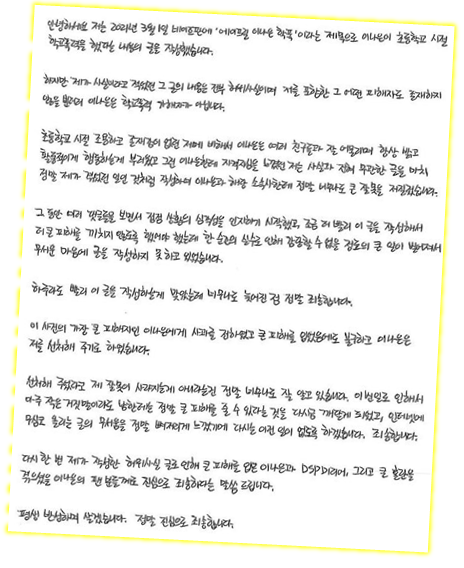 안녕하세요 저는 2021년 3월 1일 네이트판에 '에이프릴 이나은 학폭' 이라는 제목으로 이나은이 초등학교 시절
학교폭력을 했다는 내용의 글을 작성했습니다.
하지만 제가 사실이라고 적었던 그 글의 내용은 전부 허위사실이며 저를 포함한 그 어떤 피해자도 존재하지
않을 뿐더러 이나은은 학교폭력 가해자가 아닙니다.
초등학교 시절 조용하고 존재감이 없던 저에 비해서 이나은은 여러 친구들과 잘 어울리며 항상 밝고
활동적이게 행동하는게 부러웠고 그런 이나은한테 자격지심을 느꼈던 저는 사실과 전혀 무관한 글을 마치
정말 제가 겪었던 일인 것처럼 작성하여 이나은과 해당 소속사한테 정말 너무나도 큰 잘못을 저질렀습니다.
그 동안 여러 댓글들을 보면서 점점 상황의 심각성을 인지하게 시작했고, 조금 더 빨리 이 글을 작성해서
더 큰 피해를 끼치지 않도록 했어야 했는데 한 순간의 실수로 인해 감당할 수 없을 정도의 큰 일이 벌어져서
무서운 마음에 글을 작성하지 못 하고 있었습니다.
하루라도 빨리 이 글을 작성하는게 맞았는데 너무나도 늦어진 점 정말 죄송합니다.
이 사건의 가장 큰 피해자인 이나은에게 사과를 전하였고 큰 피해를 입었음에도 불구하고 이나은은
저를 선처해 주기로 하였습니다.
선처해 주었다고 제 잘못이 사라지는게 아니라는걸 정말 너무나도 잘 알고 있습니다. 이 번 일로 인해서
아주 작은 거짓말이라도 남한테는 정말 큰 피해를 줄 수 있다는 것을 다시금 깨닫게 되었고, 인터넷에
무심코 올리는 글의 무서움을 정말 뼈저리게 느꼈기에 다시는 이런 일이 없도록 하겠습니다. 죄송합니다.
다시 한 번 제가 작성한 허위사실 글로 인해 큰 피해를 입은 이나은과 DSP미디어, 그리고 큰 혼란을
겪으셨을 이나은의 팬 분들께도 진심으로 죄송하다는 말씀 드립니다.
평생 반성하며 살겠습니다. 정말 진심으로 죄송합니다.